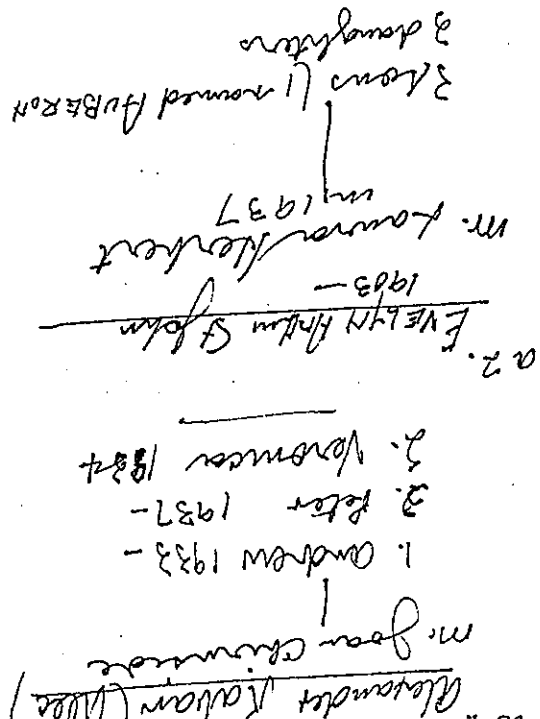 Alexander Raban (Alec)
m. Joan Chirnside
1. Andrew 1933 -
2. Peter 1937 -
3. Veronica 1934
a 2. EVELYN Arthur St John
1903 -
m. Laura Herbert
in 1937
3 sons (1 named AUBERON
3 daughters